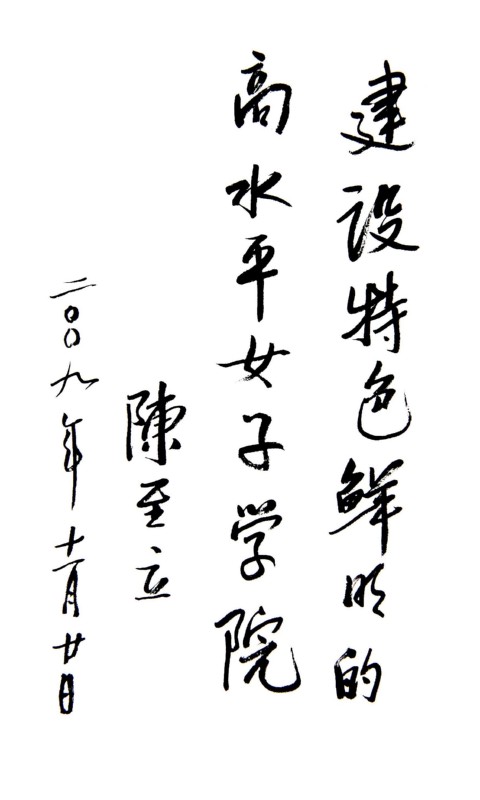 建设特色鲜明的
高水平女子学院
陳至立
二〇〇九年十一月廿日